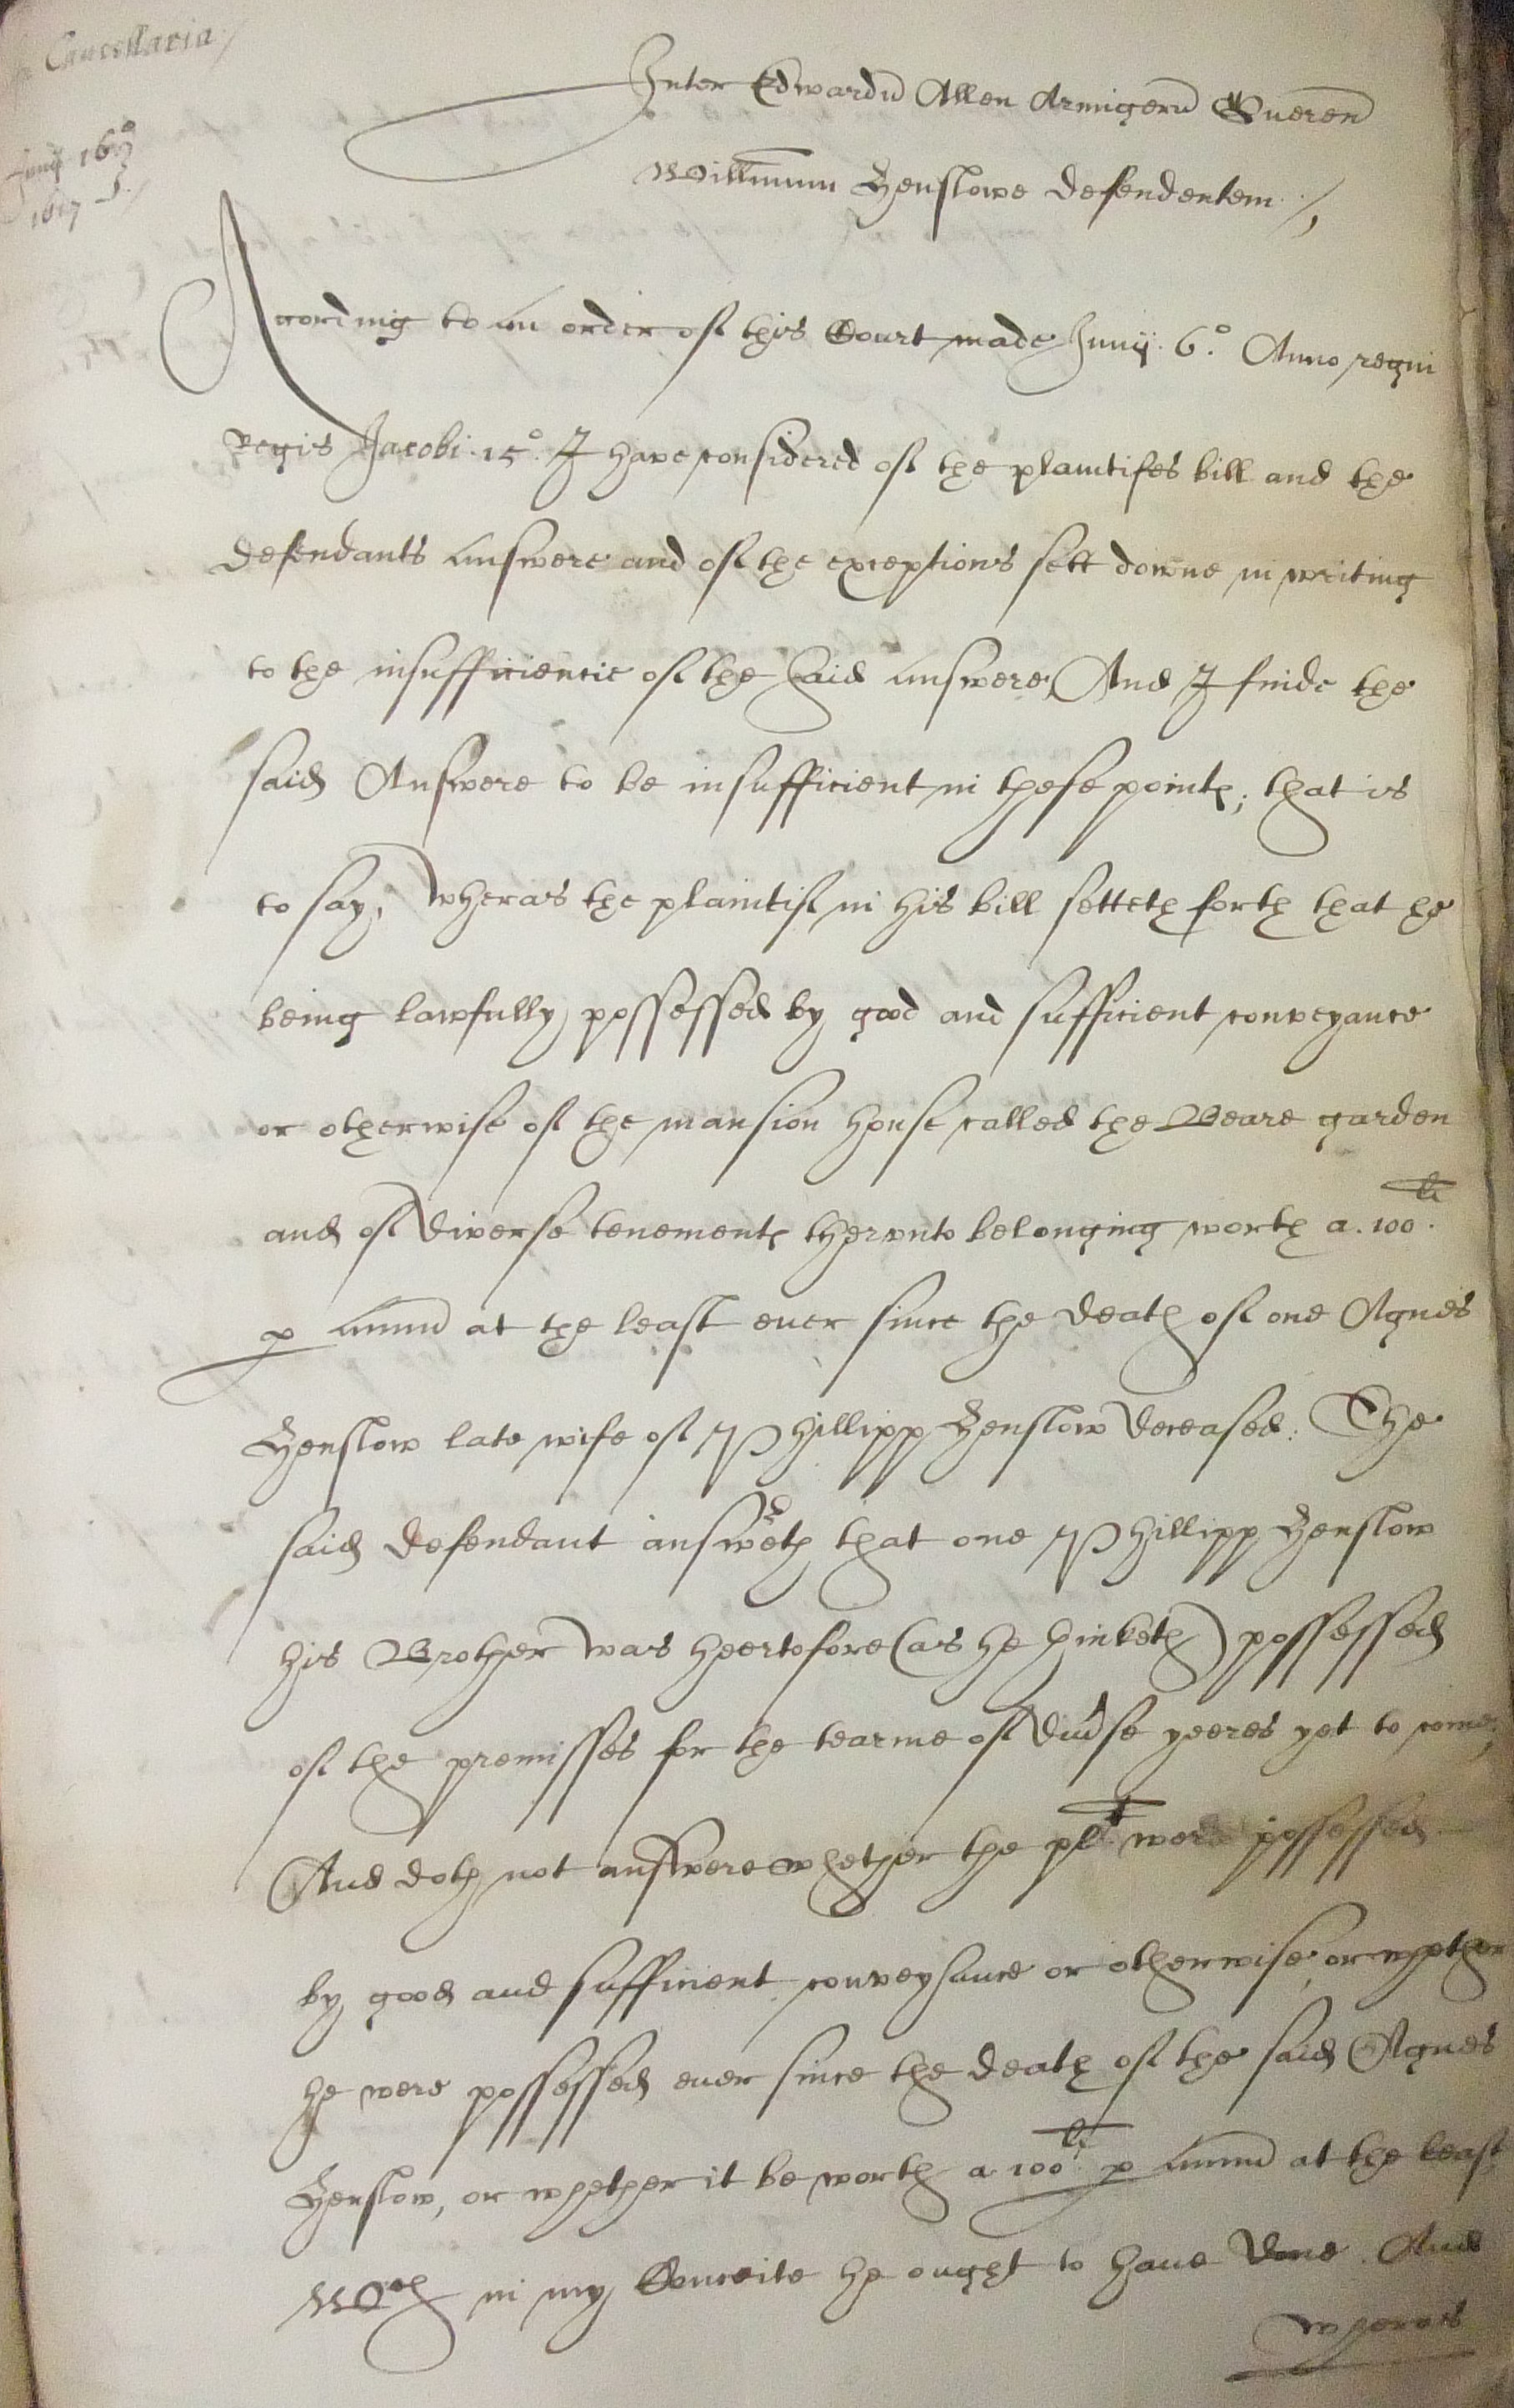 In Cancellaria
Junij 16°
1617
Inter Edwardū Allen Armigerū Queren
Willmum Henslowe defendentem
According to an order of this Court made Junij. 6.° Anno regni
Regis Jacobi. 15°. I have considered of the plaintifes bill and the
defendants answere and of the exceptions sett downe in writing
to the insufficiencie of the said answere, And I finde the
said Answere to be insufficient in these points; that is
to say, wheras the plaintif in his bill setteth forth that he
being lawfully possessed by good and sufficient conveyance
or otherwise of the mansion house called the Beare garden
and of diverse tenements therunto belonging worth a. 100.li
p annū at the least ever since the death of one Agnes
Henslow late wife of Phillipp Henslow deceased: The
said defendant answeth that one Phillipp Henslow
his Brother was heertofore (as he thinketh) possessed
of the premisses for the tearme of div'se yeeres yet to come;
And doth not answere whether the plt were possessed
by good and sufficient conveyhance or otherwise, or whether
he were possessed ever since the death of the said Agnes
Henslow, or whether it be worth a 100li p annū at the least
Wch in my Conceite he ought to haue done. And
wheras